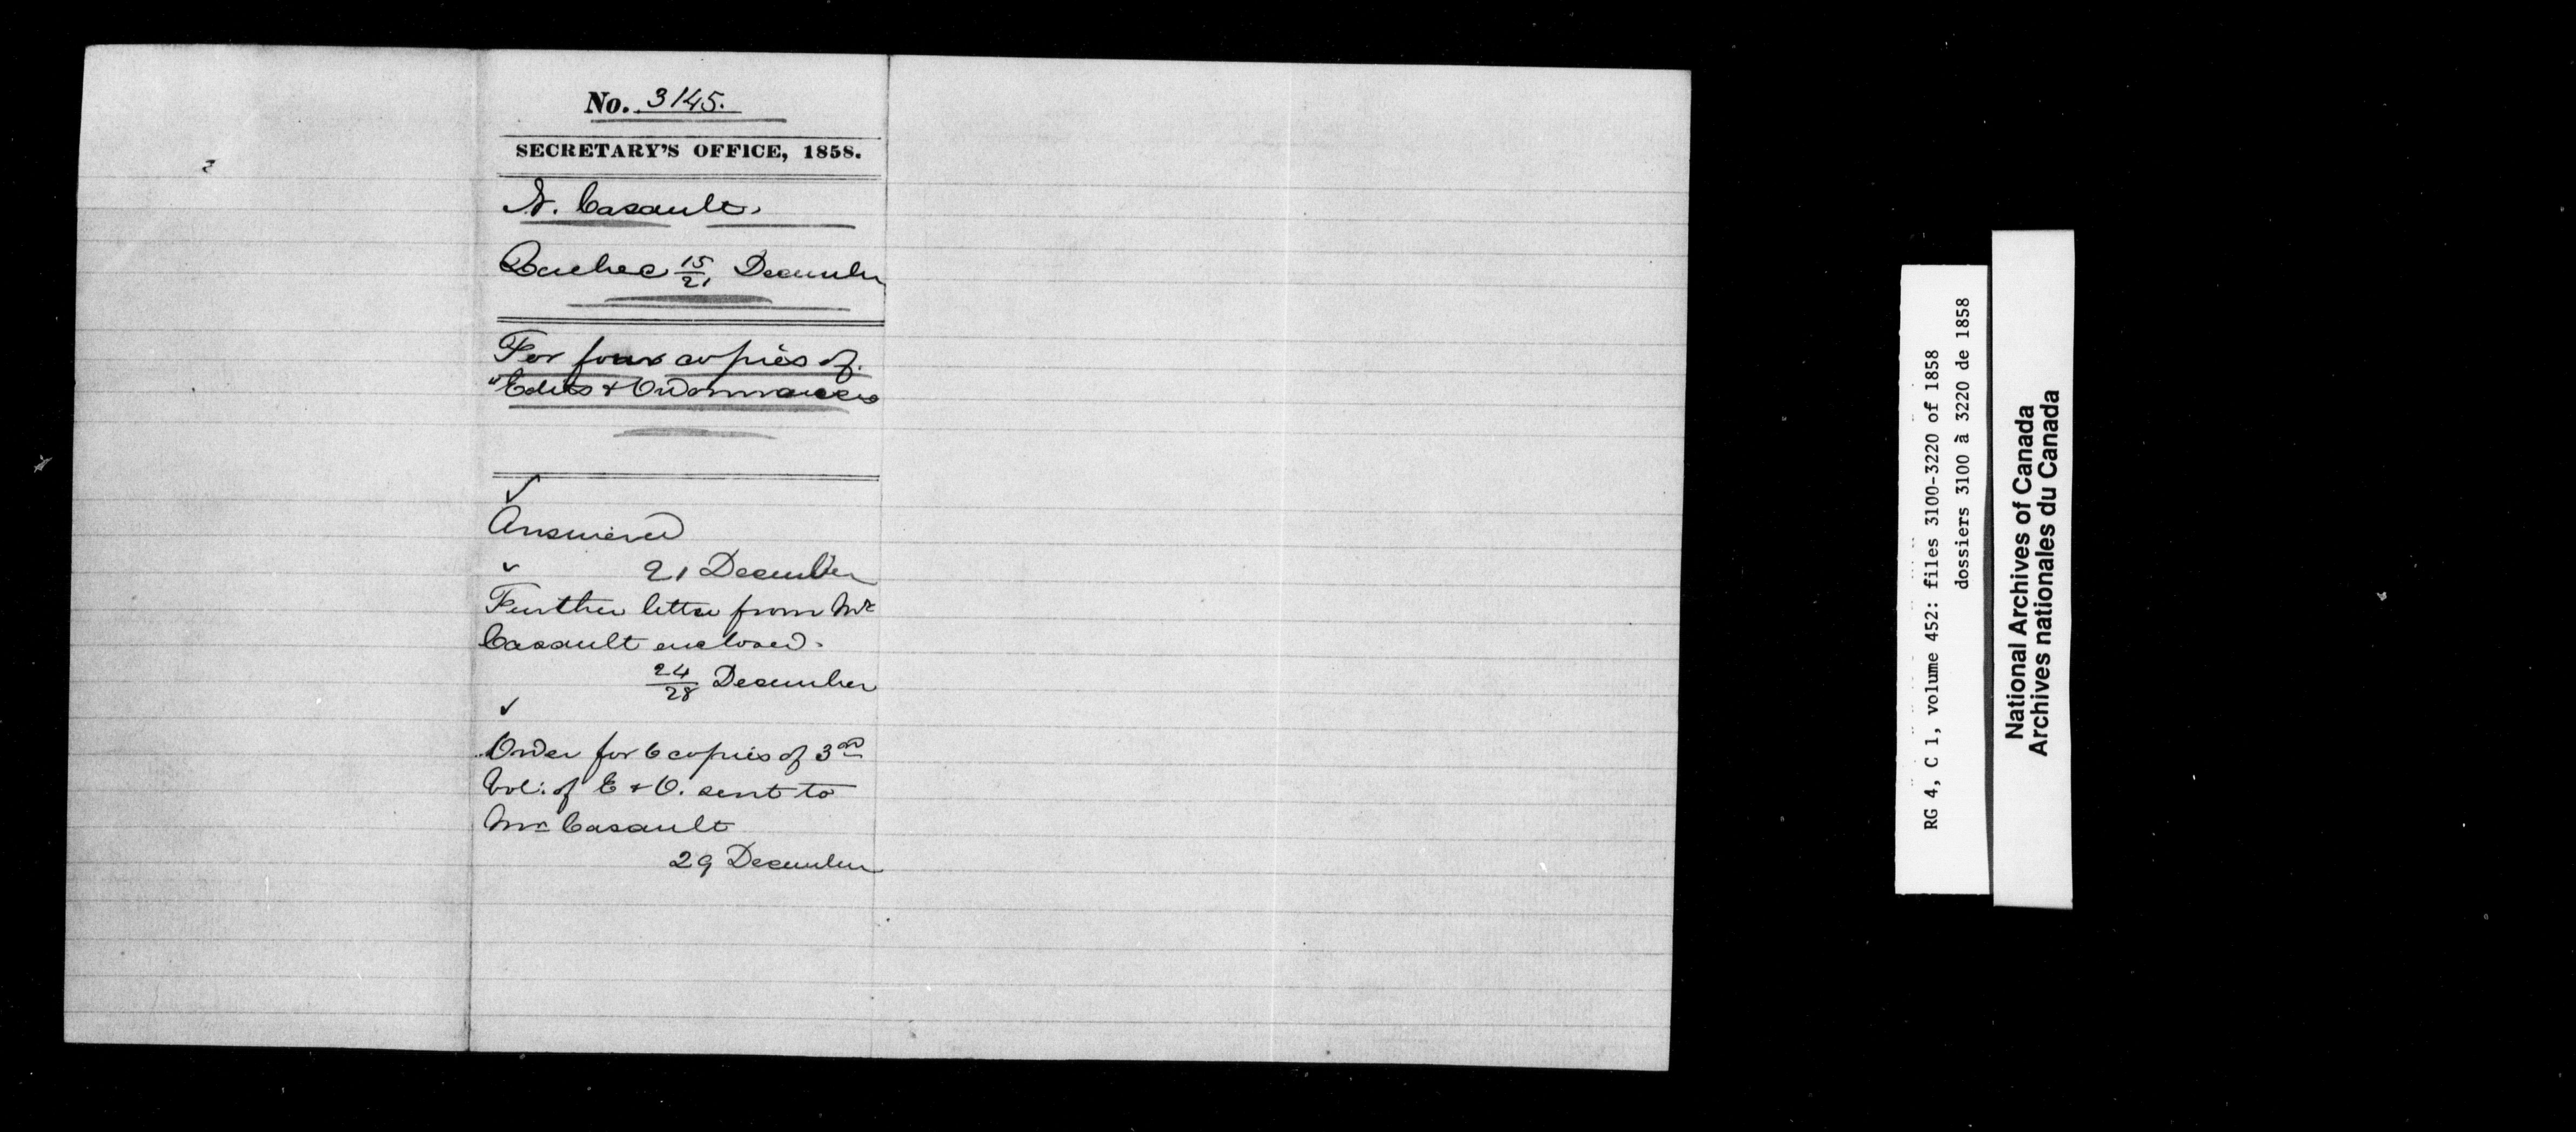 No. 3145.
SECRETARY'S OFFICE, 1858.
N. Casault.
Quebec 15/21 December
For four copies of
"Edits & Ordonnances
Answered
21 December
Further letter from Mr
Casault enclosed.
24/28 December
Order for 6 copies of 3rd
Vol: of E & O. sent to
Mr Casault
29 December
RG 4, C 1, volume 452: files 3100-3220 of 1858
dossiers 3100 à 3220 de 1858
National Archives of Canada
Archives nationales du Canada